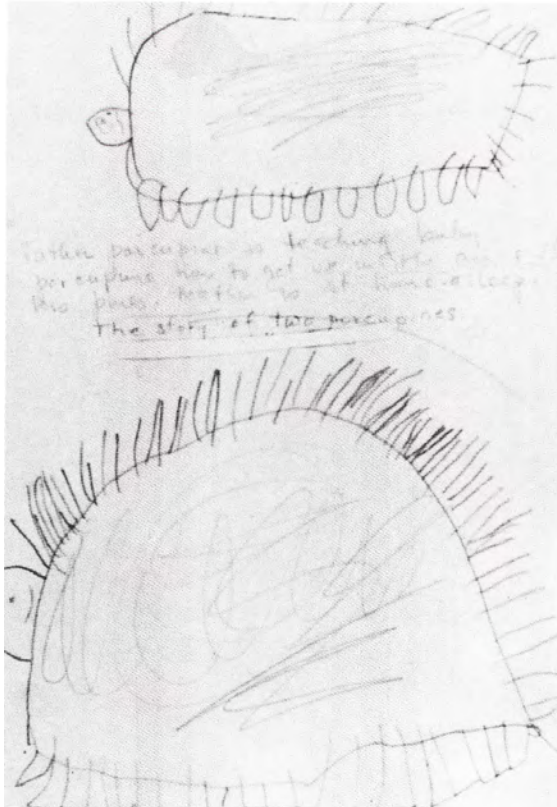 Father porcupine is teaching baby
porcupine how to get up in the air
his pines. Mother is at home
The story of two porcupines.